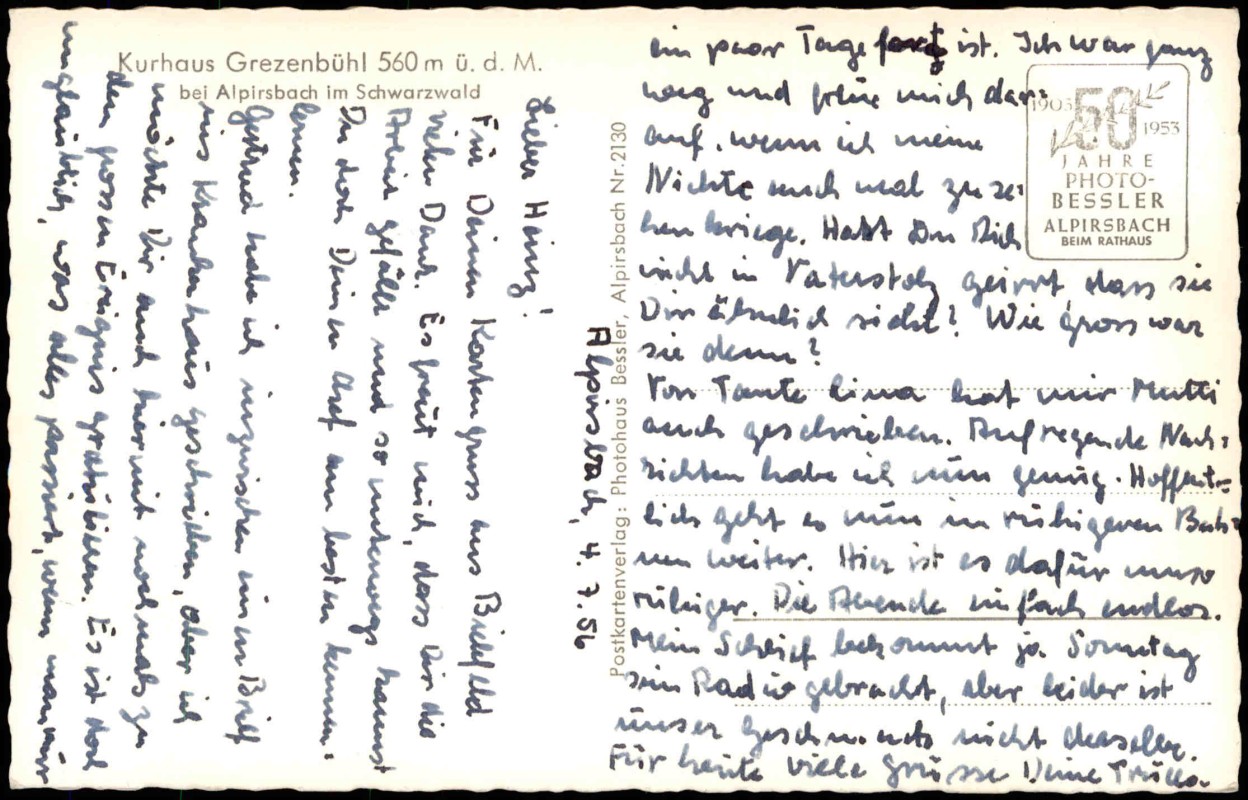 Kurhaus Grezenbühl 560 m ü. d. M.
bei Alpirsbach im Schwarzwald
Alpirsbach, 4. 7. 56
Lieber Heinz!
Für Deinen Kartengruss aus Bielefeld
vielen Dank. Es freut mich, dass Dir die
Arbeit gefällt und so unterwegs kannst
Du doch Deinen Chef am besten kennen:
lernen.
Gertrud habe ich inzwischen einen Brief
ins Krankenhaus geschrieben, aber ich
möchte Dir auch hiermit nochmals zu
dem grossen Ereignis gratulieren. Es ist doch
unglaublich, was alles passiert, wenn man nur
ein paar Tage fort ist. Ich war ganz
weg und freue mich dar:
auf, wenn ich meine
Nichte auch mal zu se:
hen kriege. Hast Du Dich
nicht in Vaterstolz geirrt, dass sie
Dir ähnlich sieht? Wie gross war
sie denn?
Von Tante Lina hat mir Mutti
auch geschrieben. Aufregende Nach:
richten habe ich nun genug. Hoffent:
lich geht es nun in ruhigeren Bah:
nen weiter. Hier ist es dafür umso
ruhiger. Die Abende einfach endlos.
Mein bekommt ja Sonntag
sein Radio gebracht, aber leider ist
unser Geschmack nicht derselbe.
Für heute viele Grüsse Deine
1903 50 1953
JAHRE
PHOTO-
BESSLER
ALPIRSBACH
BEIM RATHAUS
Postkartenverlag: Photohaus Bessler, Alpirsbach Nr. 2130